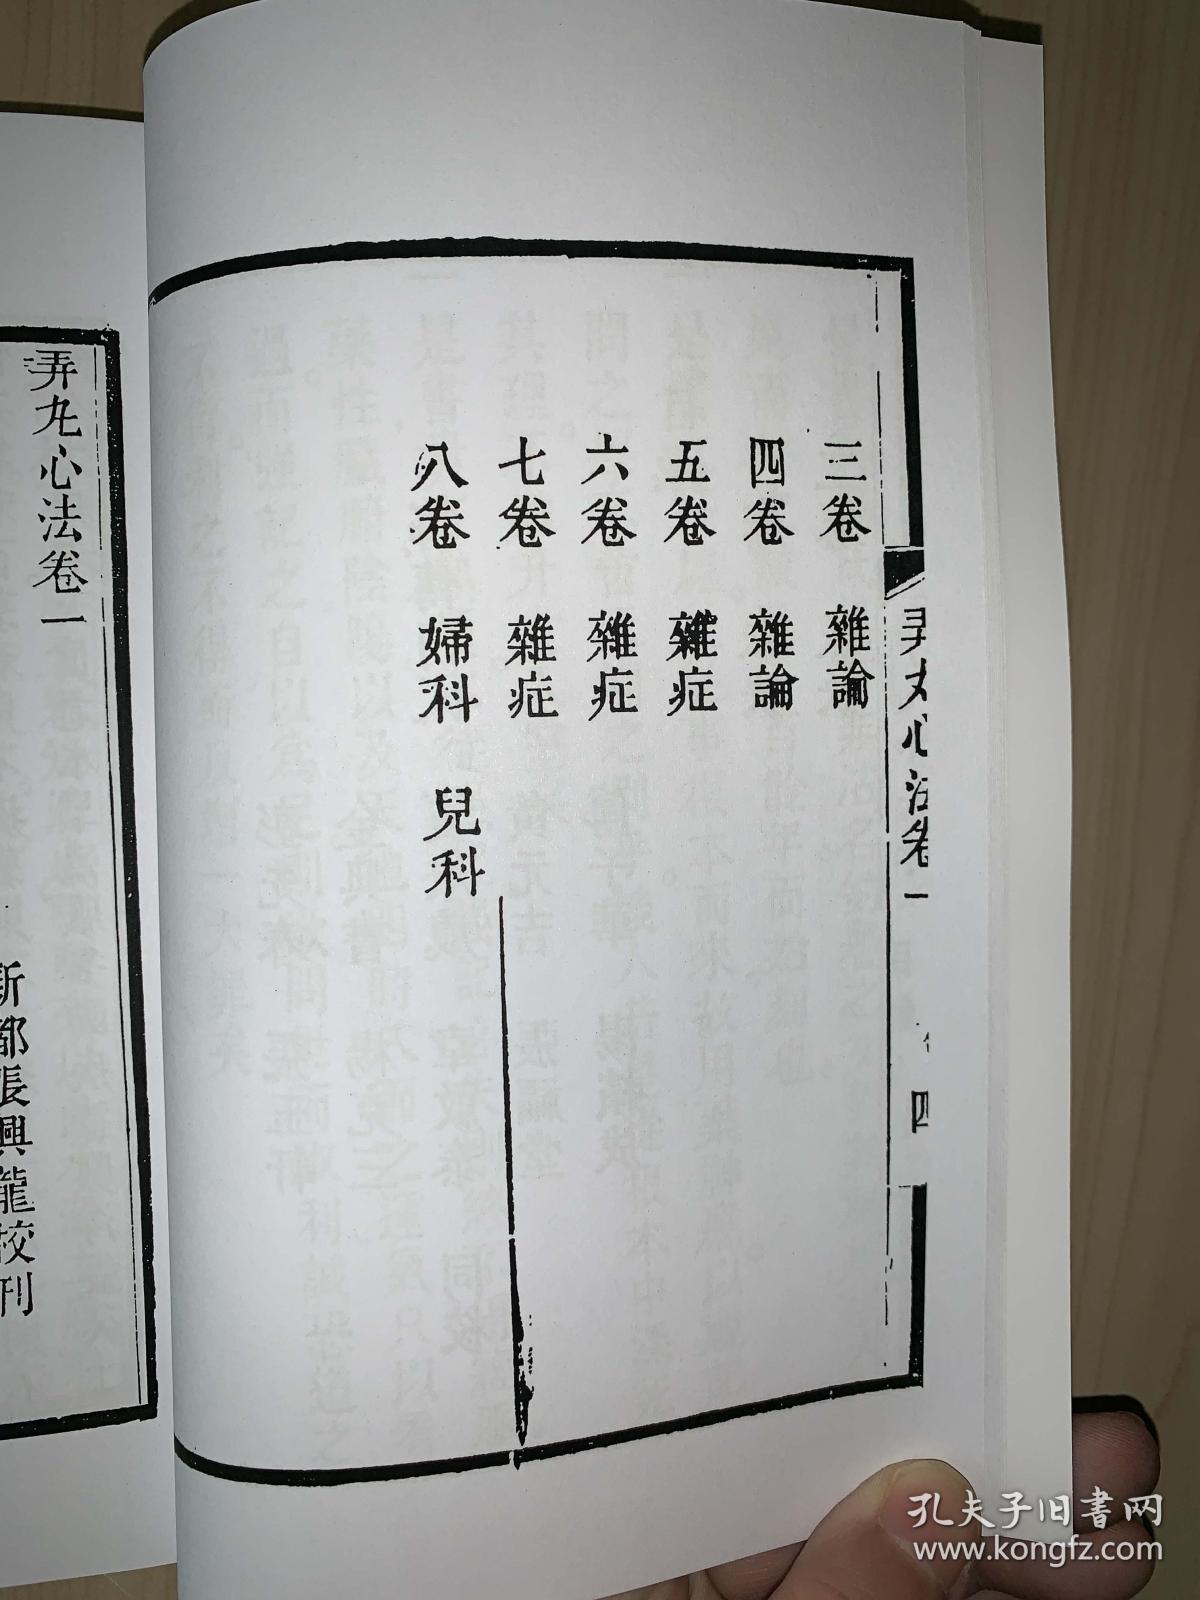 三卷 雜論
四卷 雜論
五卷 雜症
六卷 雜症
七卷 雜症
八卷 婦科 兒科
四
弄丸心法卷一
新都張興龍校刊
孔夫子旧書网
www.kongfz.com